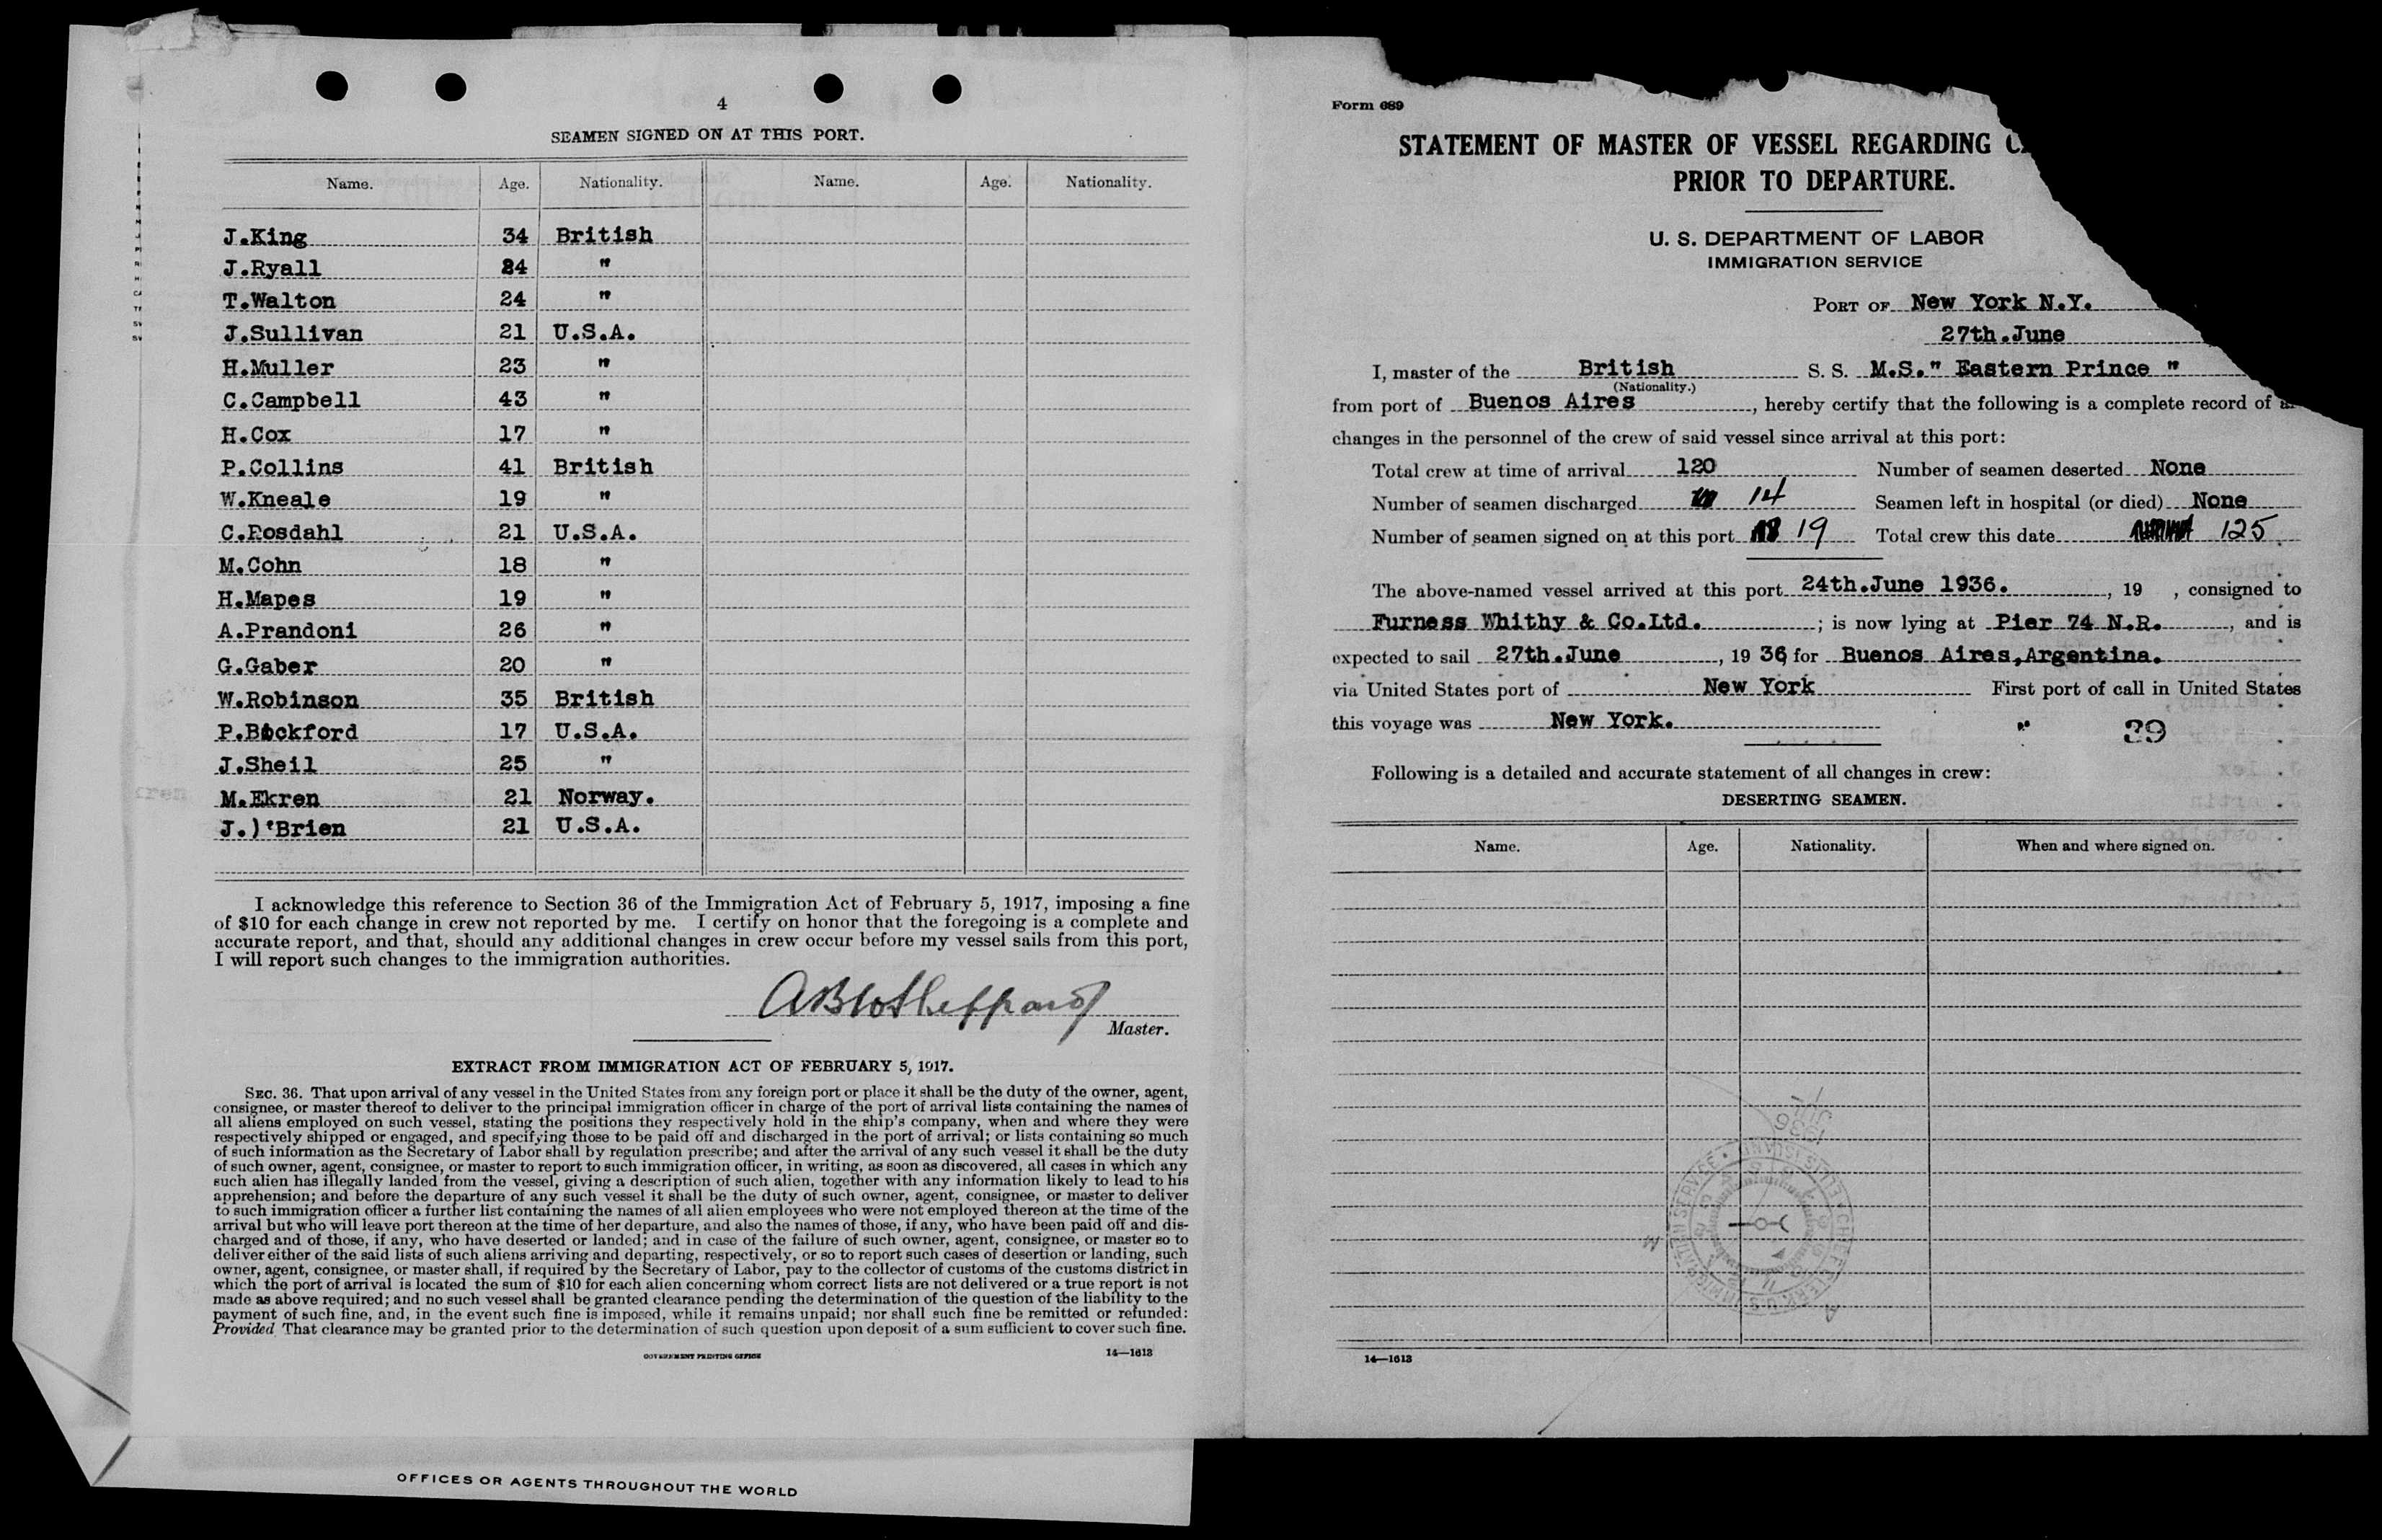 4
SEAMEN SIGNED ON AT THIS PORT.
Name. Age. Nationality. Name. Age. Nationality.
J.King 34 British
J.Ryall 24 "
T.Walton 24 "
J.Sullivan 21 U.S.A.
H.Muller 23 "
C.Campbell 43 "
H.Cox 17 "
P.Collins 41 British
W.Kneale 19 "
C.Rosdahl 21 U.S.A.
M.Cohn 18 "
H.Mapes 19 "
A.Prandoni 26 "
G.Gaber 20 "
W.Robinson 35 British
P.Bickford 17 U.S.A.
J.Sheil 25 "
M.Ekren 21 Norway.
J.)'Brien 21 U.S.A.
I acknowledge this reference to Section 36 of the Immigration Act of February 5, 1917, imposing a fine
of $10 for each change in crew not reported by me. I certify on honor that the foregoing is a complete and
accurate report, and that, should any additional changes in crew occur before my vessel sails from this port,
I will report such changes to the immigration authorities.
Sheppard
Master.
EXTRACT FROM IMMIGRATION ACT OF FEBRUARY 5, 1917.
SEC. 36. That upon arrival of any vessel in the United States from any foreign port or place it shall be the duty of the owner, agent,
consignee, or master thereof to deliver to the principal immigration officer in charge of the port of arrival lists containing the names of
all aliens employed on such vessel, stating the positions they respectively hold in the ship's company, when and where they were
respectively shipped or engaged, and specifying those to be paid off and discharged in the port of arrival; or lists containing so much
of such information as the Secretary of Labor shall by regulation prescribe; and after the arrival of any such vessel it shall be the duty
of such owner, agent, consignee, or master to report to such immigration officer, in writing, as soon as discovered, all cases in which any
such alien has illegally landed from the vessel, giving a description of such alien, together with any information likely to lead to his
apprehension; and before the departure of any such vessel it shall be the duty of such owner, agent, consignee, or master to deliver
to such immigration officer a further list containing the names of all alien employees who were not employed thereon at the time of the
arrival but who will leave port thereon at the time of her departure, and also the names of those, if any, who have been paid off and dis-
charged and of those, if any, who have deserted or landed; and in case of the failure of such owner, agent, consignee, or master so to
deliver either of the said lists of such aliens arriving and departing, respectively, or so to report such cases of desertion or landing, such
owner, agent, consignee, or master shall, if required by the Secretary of Labor, pay to the collector of customs of the customs district in
which the port of arrival is located the sum of $10 for each alien concerning whom correct lists are not delivered or a true report is not
made as above required; and no such vessel shall be granted clearance pending the determination of the question of the liability to the
payment of such fine, and, in the event such fine is imposed, while it remains unpaid; nor shall such fine be remitted or refunded:
Provided That clearance may be granted prior to the determination of such question upon deposit of a sum sufficient to cover such fine.
GOVERNMENT PRINTING OFFICE 14—1613
OFFICES OR AGENTS THROUGHOUT THE WORLD
Form 689
STATEMENT OF MASTER OF VESSEL REGARDING C
PRIOR TO DEPARTURE.
U. S. DEPARTMENT OF LABOR
IMMIGRATION SERVICE
PORT OF New York N.Y.
27th.June
I, master of the British S. S. M.S." Eastern Prince "
(Nationality.)
from port of Buenos Aires, hereby certify that the following is a complete record of
changes in the personnel of the crew of said vessel since arrival at this port:
Total crew at time of arrival 120 Number of seamen deserted None
Number of seamen discharged 14 Seamen left in hospital (or died) None
Number of seamen signed on at this port 19 Total crew this date 125
The above-named vessel arrived at this port 24th.June 1936. , 19 , consigned to
Furness Whithy & Co.Ltd. ; is now lying at Pier 74 N.R. , and is
expected to sail 27th.June , 19 36, for Buenos Aires,Argentina.
via United States port of New York First port of call in United States
this voyage was New York. " 39
Following is a detailed and accurate statement of all changes in crew:
DESERTING SEAMEN.
Name. Age. Nationality. When and where signed on.
1936
14—1613